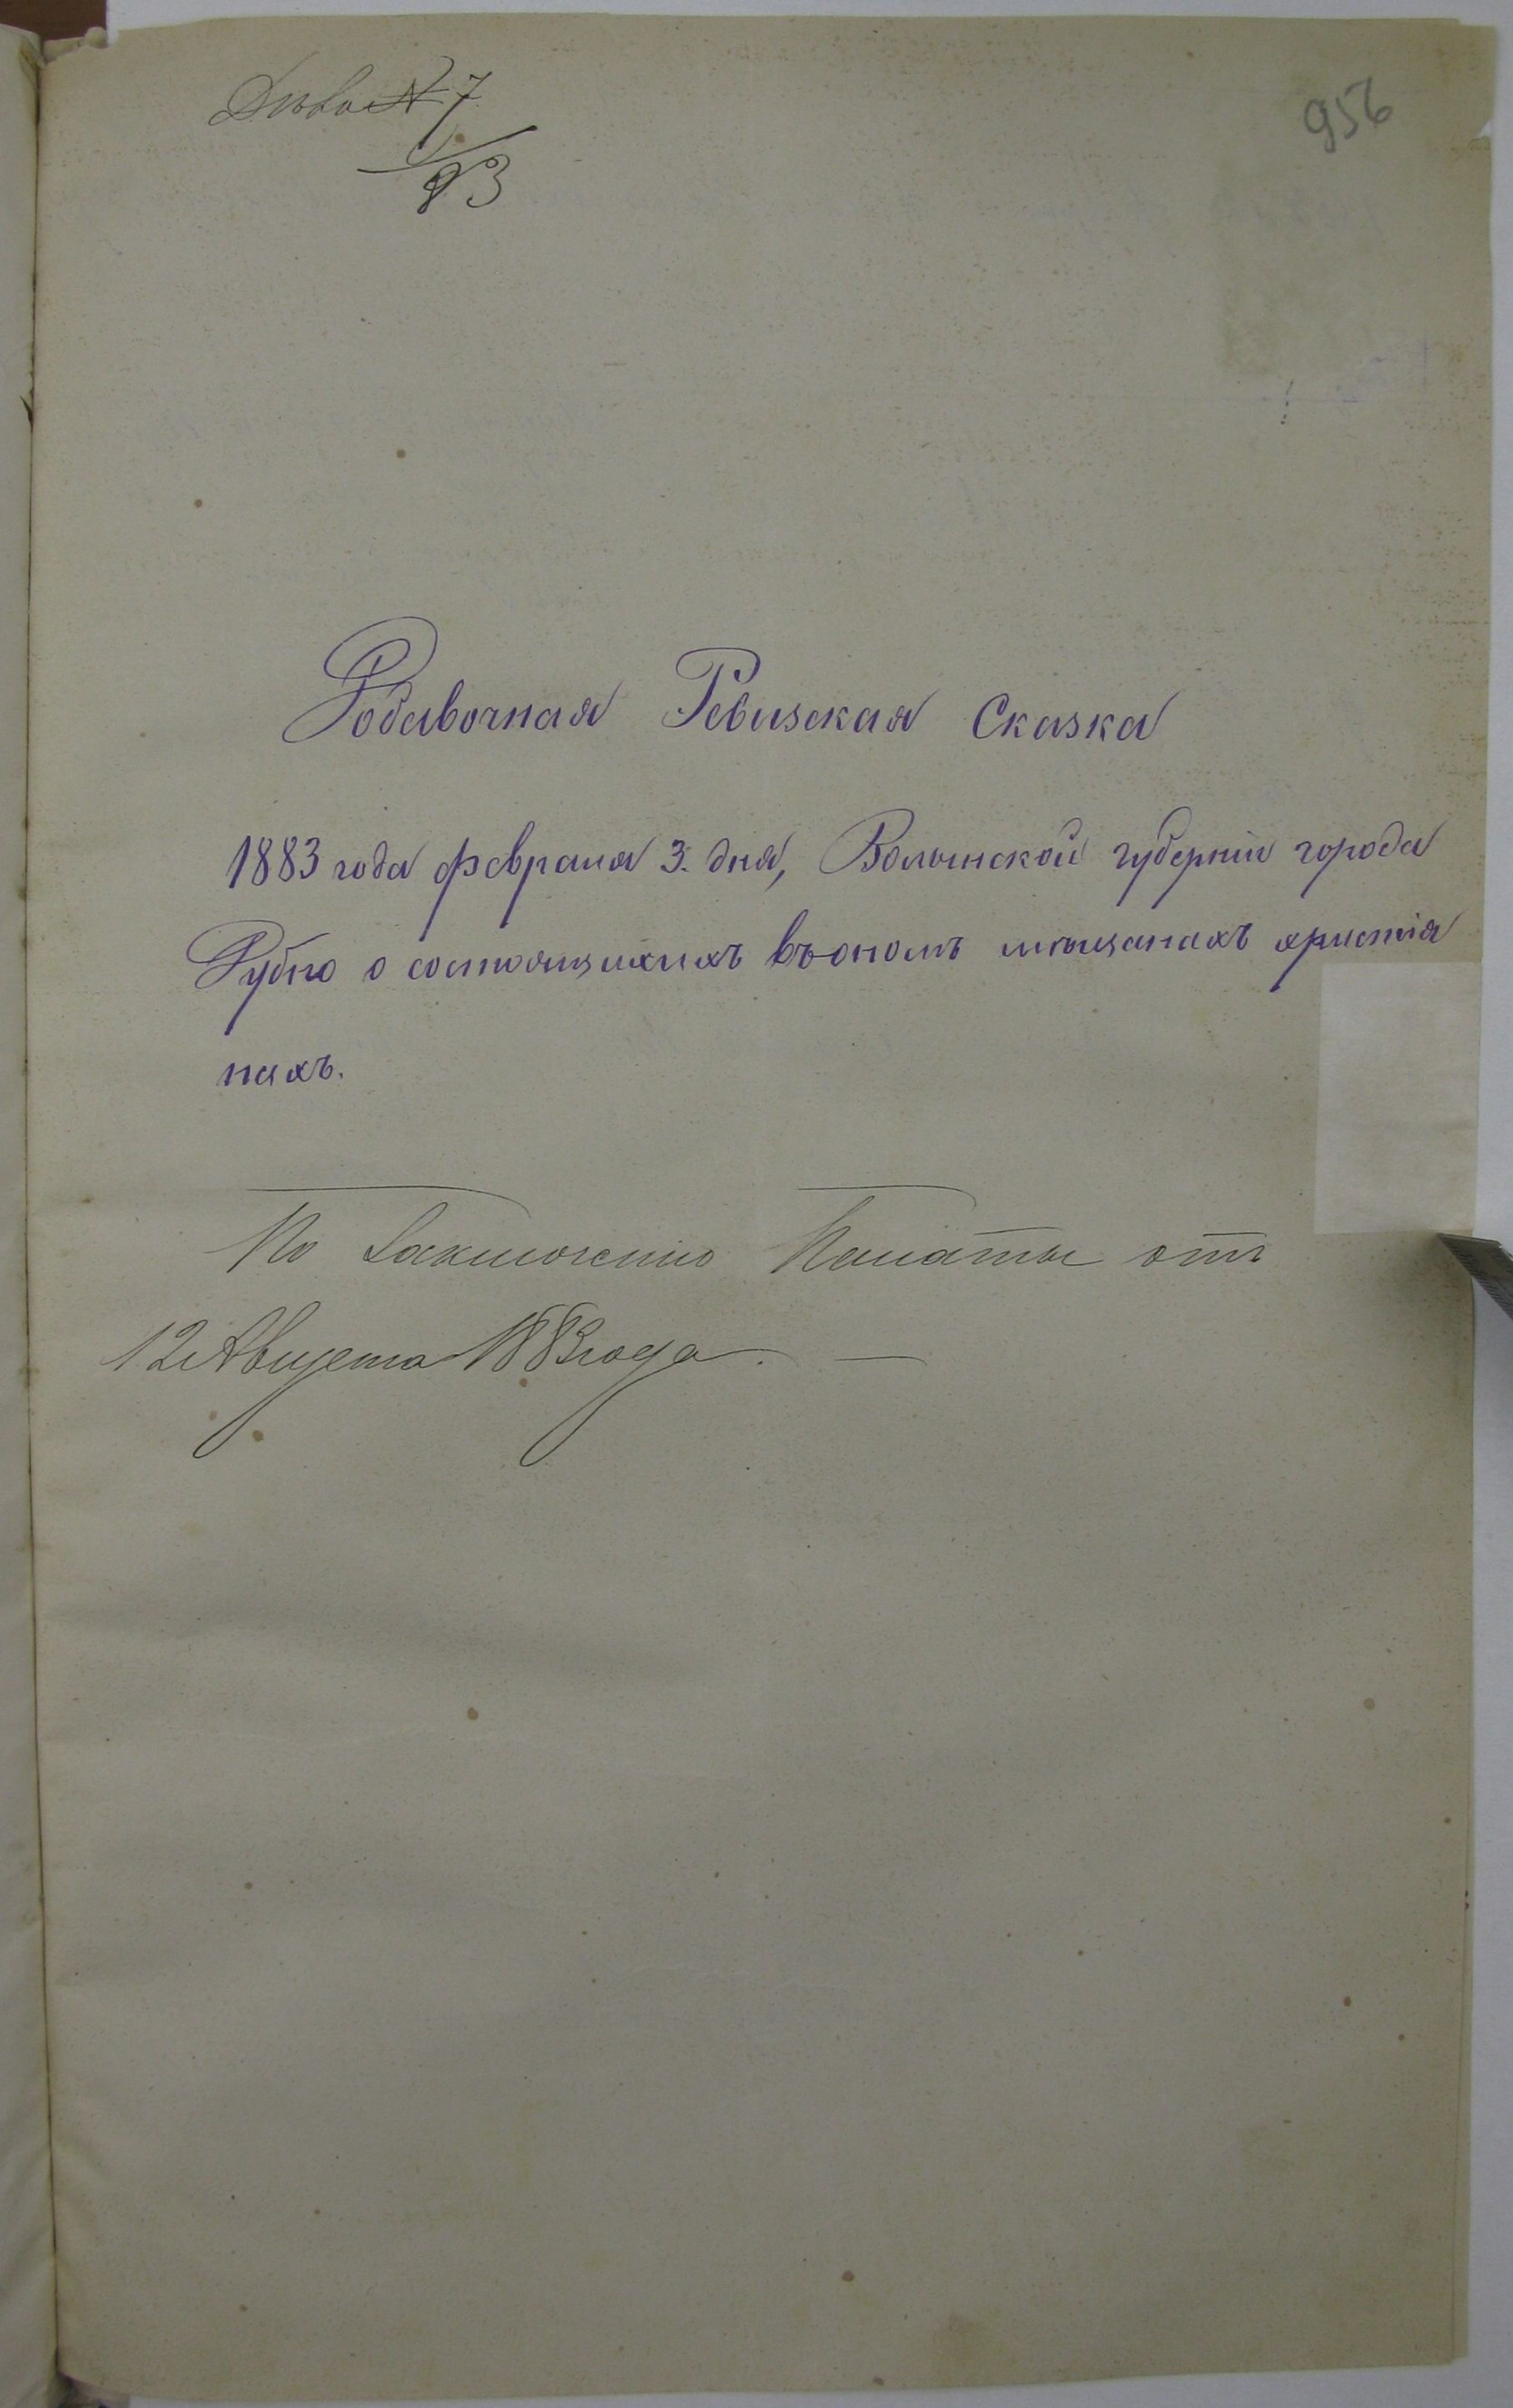 Дѣло № 7
83
956
Добавочная Ревизская Сказка
1883 года февраля 3. дня, Волынской губерніи города
Дубно о состоящихъ въ ономъ мѣщанахъ христіа
нахъ.
По Заключенію Палаты отъ
12 Августа 1883 года. —